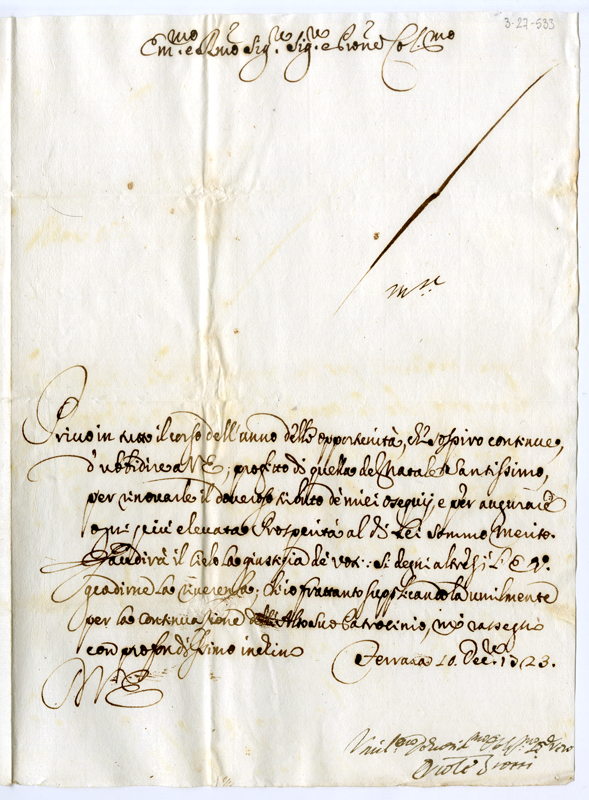 3-27-533
Em.mo e R.mo Sig.re Sig.re e Pron.e Col.mo
Privo in tutto il corso dell'anno delle opportunità, ch'sospiro continue,
d'ubbidire a V E; profitto di quella del Natale Santissimo,
per rinovarle il doveroso tributo de miei ossequij, e per augurare
ogni più elevata Prosperità al di Lei sommo Merito.
il Cielo la giustizia de voti: si degni altresì L' E V.
gradirne la riverenza; ch'io frattanto supplicandola umilmente
per la continuazione dell' Alto suo Patrocinio, mi rassegno
con profondissimo inchino
Ferrara 10. Dec.re 1723.
V E